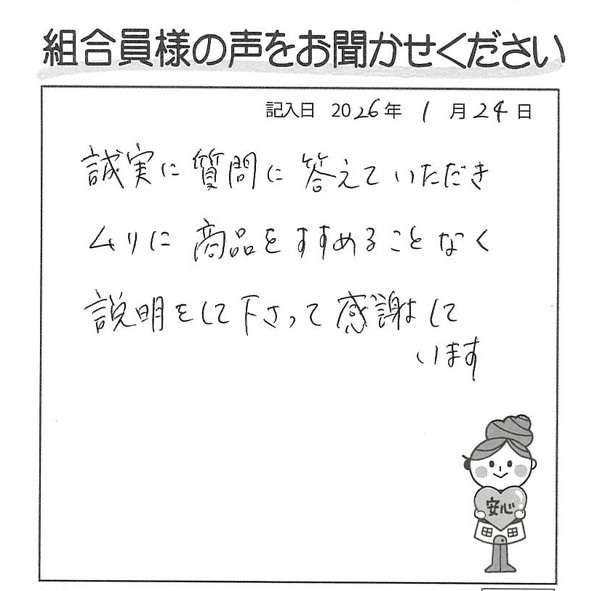 組合員様の声をお聞かせください
記入日 2026年 1月24日
誠実に質問に答えていただき
ムリに商品をすすめることなく
説明をして下さって感謝して
います
安心